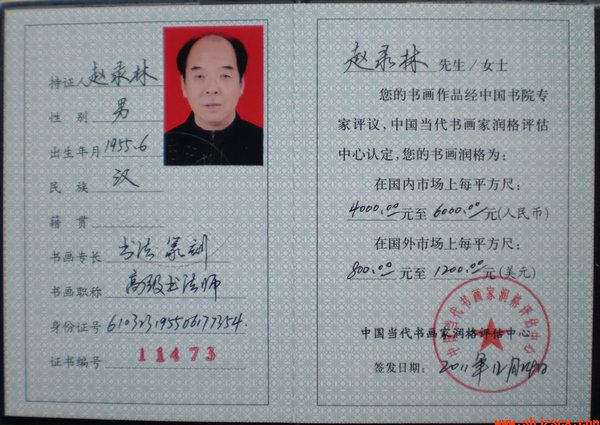 持证人 赵录林
性 别 男
出生年月 1955.6
民 族 汉
籍 贯
书画专长 书法 篆刻
书画职称 高级书法师
身份证号 610323195506177354
证书编号 11473
赵录林 先生/女士
您的书画作品经中国书院专
家评议,中国当代书画家润格评估
中心认定,您的书画润格为:
在国内市场上每平方尺:
4000.00元至 6000.00元(人民币)
在国外市场上每平方尺:
800.00元至 1200.00元(美元)
中国当代书画家润格评估中心
中国当代书画家润格评估中心
签发日期: 2011年12月29日